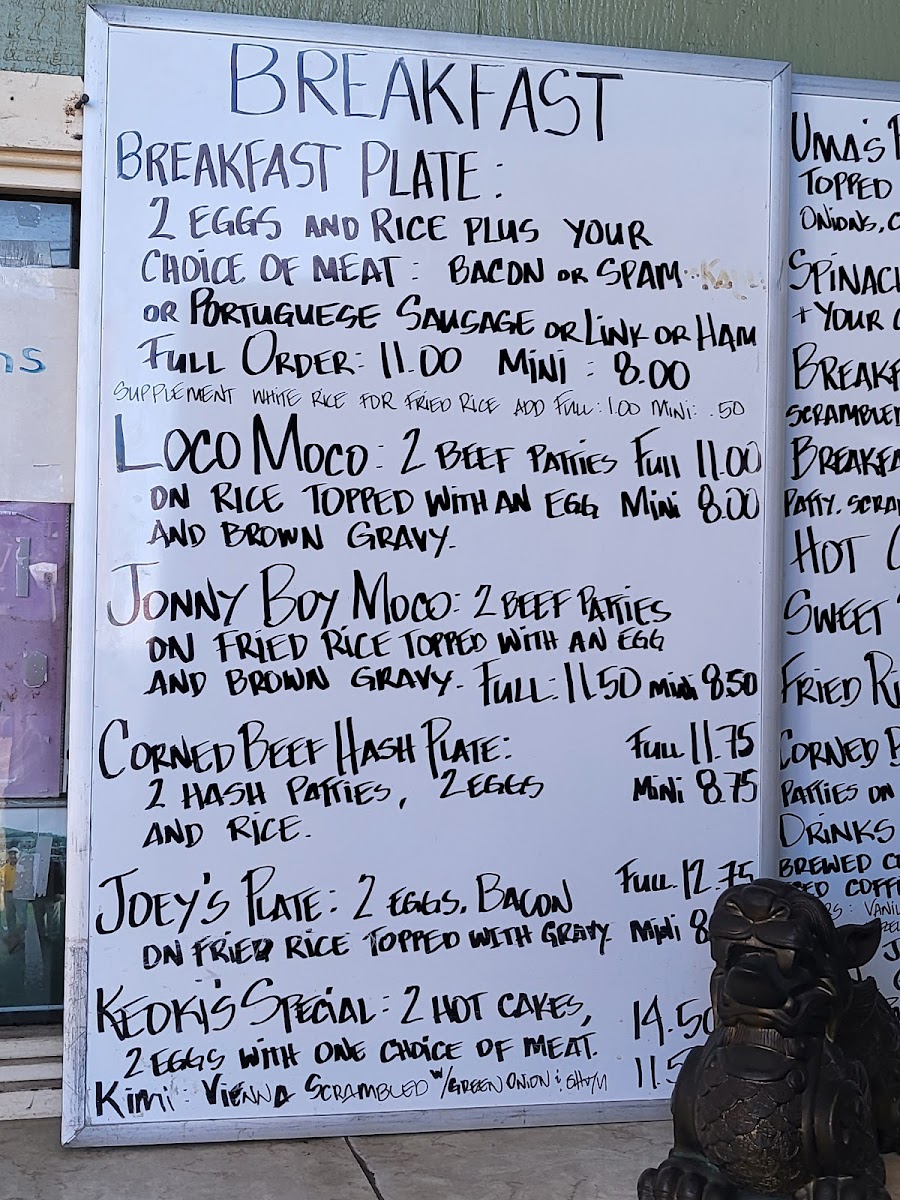 BREAKFAST
BREAKFAST PLATE:
2 EGGS AND RICE PLUS YOUR
CHOICE OF MEAT: BACON OR SPAM
OR PORTUGUESE SAUSAGE OR LINK OR HAM
FULL ORDER: 11.00 MINI: 8.00
SUPPLEMENT WHITE RICE FOR FRIED RICE ADD FULL: 1.00 MINI: .50
LOCO MOCO: 2 BEEF PATTIES FULL 11.00
ON RICE TOPPED WITH AN EGG MINI 8.00
AND BROWN GRAVY.
JONNY BOY MOCO: 2 BEEF PATTIES
ON FRIED RICE TOPPED WITH AN EGG
AND BROWN GRAVY. FULL: 11.50 MINI 8.50
CORNED BEEF HASH PLATE: FULL 11.75
2 HASH PATTIES, 2 EGGS MINI 8.75
AND RICE.
JOEY'S PLATE: 2 EGGS, BACON FULL 12.75
ON FRIED RICE TOPPED WITH GRAVY MINI 8
KEOKI'S SPECIAL: 2 HOT CAKES, 14.50
2 EGGS WITH ONE CHOICE OF MEAT. 11.5
KIMI VIENNA SCRAMBLED W/GREEN ONION &
UMA'S
TOPPED
ONIONS,
SPINAC
+ YOUR
BREAKF
SCRAMBLE
BREAKFA
PATTY, SCRA
HOT
SWEET
FRIED RI
CORNED
PATTIES ON
DRINKS
BREWED
COFF
VANIL
ns